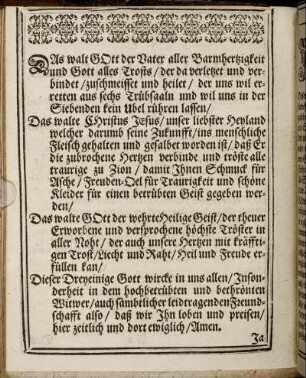 DAs walt GOtt der Vater aller Barmhertzigkeit
und Gott alles Trosts / der da verletzet und ver-
bindet / zuschmeisset und heilet / der uns wil er-
retten aus sechs Trübsaaln und wil uns in der
Siebenden kein Ubel rühren lassen /
Das walte CHristus Jesus / unser liebster Heyland
welcher darumb seine Zukunfft / ins menschliche
Fleisch gehalten und gesalbet worden ist / daß Er
die zubrochene Hertzen verbinde und tröste alle
traurige zu Zion / damit Ihnen Schmuck für
Asche / Freuden-Oel für Traurigkeit und schöne
Kleider für einen betrübten Geist gegeben wer-
den /
Das walte GOtt der wehrte Heilige Geist / der theuer
Erworbene und versprochene höchste Tröster in
aller Noht / der auch unsere Hertzen mit kräffti-
gen Trost / Liecht und Raht / Heil und Freude er-
füllen kan /
Dieser Dreyeinige Gott wircke in uns allen / Inson-
derheit in dem hochbetrübten und bethrönten
Witwer / auch sämbtlicher leidtragenden Freund-
schafft also / daß wir Ihn loben und preisen /
hier zeitlich und dort ewiglich / Amen.
Ja